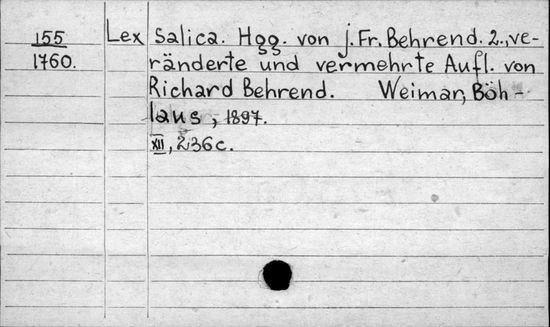 155 Lex Salica. Hgg. von J. Fr. Behrend. 2., ve-
1760. ränderte und vermehrte Aufl. von
Richard Behrend. Weimar, Böh-
laus, 1897.
XII, 236 c.